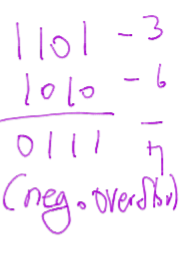 1101 - 3
1010 - 6
0111 7
(neg. overflow)